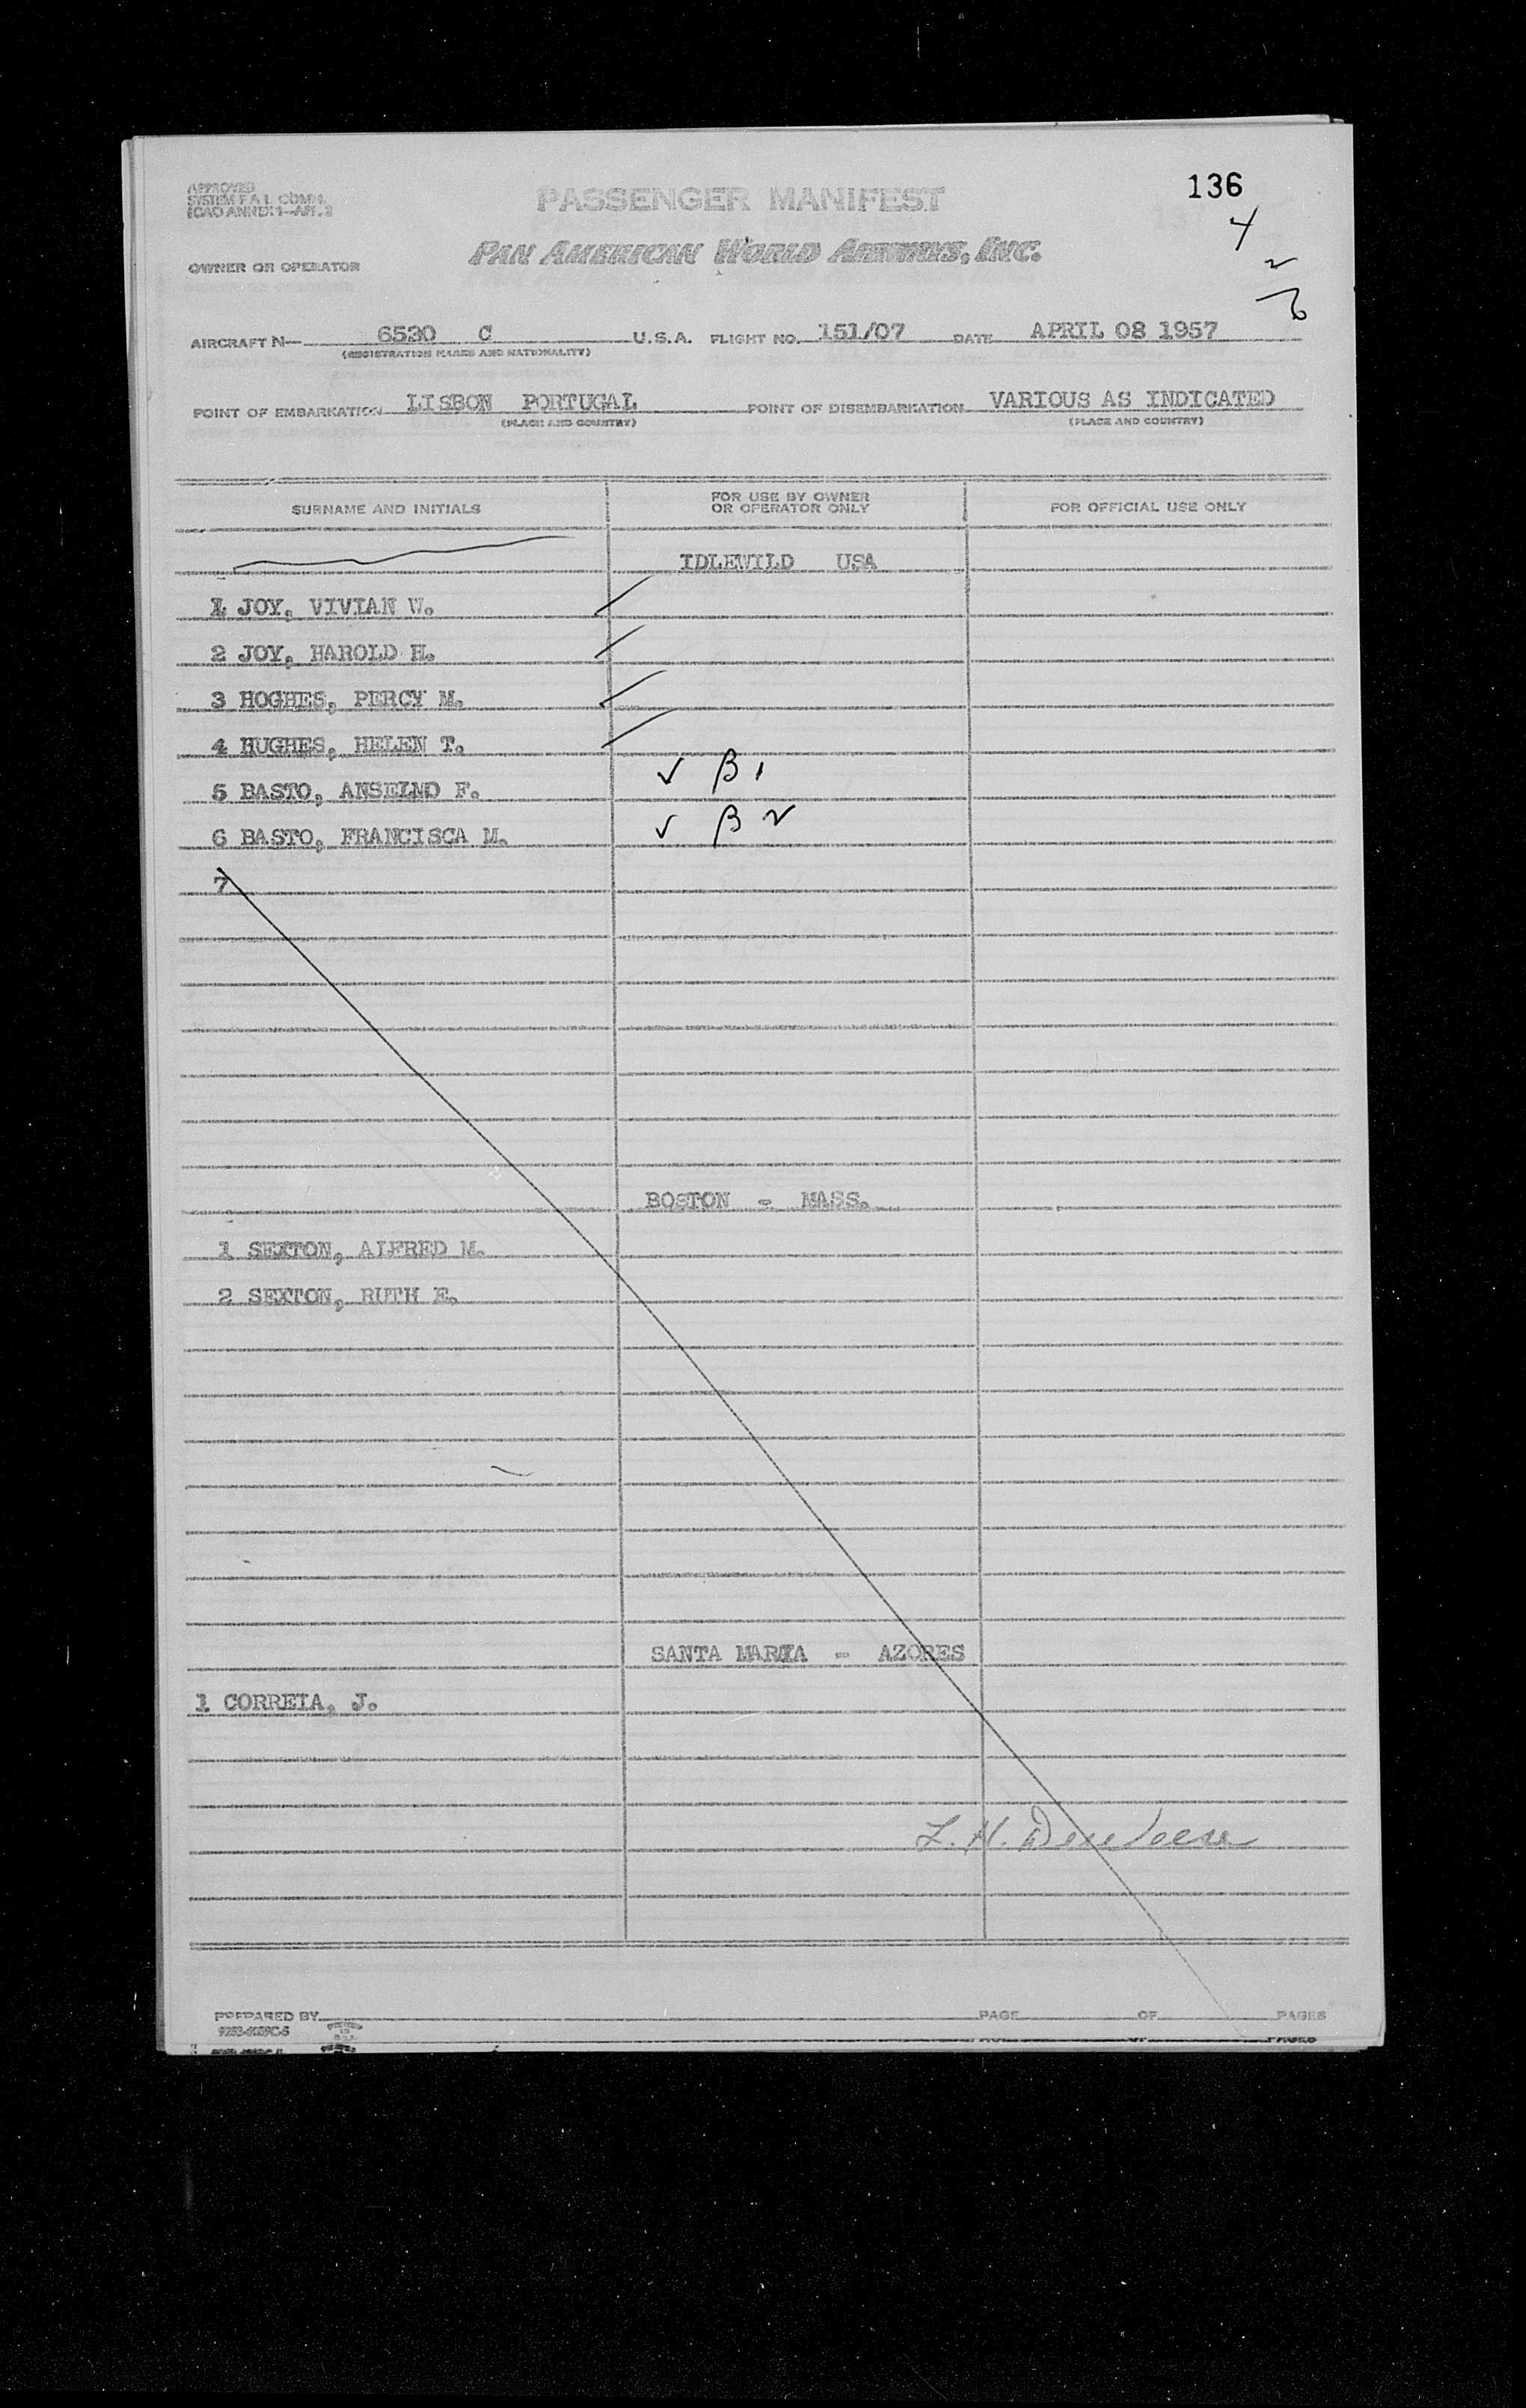 136
APPROVED
SYSTEM F A L COMM.
ICAO ANNEX 9-APP. 3
PASSENGER MANIFEST
4
PAN AMERICAN WORLD AIRWAYS, INC.
OWNER OR OPERATOR
2
6
AIRCRAFT N- 6530 C U.S.A. FLIGHT NO. 151/07 DATE APRIL 08 1957
(REGISTRATION MARKS AND NATIONALITY)
POINT OF EMBARKATION LISBON PORTUGAL POINT OF DISEMBARKATION VARIOUS AS INDICATED
(PLACE AND COUNTRY) (PLACE AND COUNTRY)
SURNAME AND INITIALS FOR USE BY OWNER OR OPERATOR ONLY FOR OFFICIAL USE ONLY
IDLEWILD USA
1 JOY, VIVIAN W.
2 JOY, HAROLD H.
3 HOGHES, PERCY M.
4 HUGHES, HELEN T.
5 BASTO, ANSELMO F. ✓ B 1
6 BASTO, FRANCISCA M. ✓ B 2
7
BOSTON - MASS.
1 SEXTON, ALFRED M.
2 SEXTON, RUTH E.
SANTA MARIA - AZORES
1 CORREIA, J.
L. H.
PREPARED BY PAGE OF PAGES